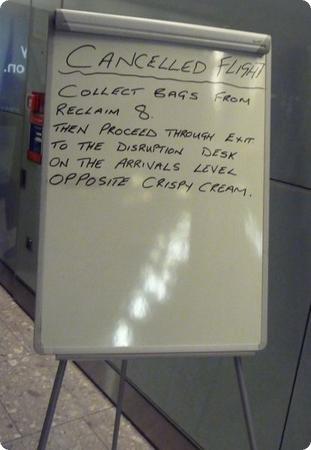 CANCELLED FLIGHT
COLLECT BAGS FROM
RECLAIM 8.
THEN PROCEED THROUGH EXIT
TO THE DISRUPTION DESK
ON THE ARRIVALS LEVEL
OPPOSITE CRISPY CREAM.